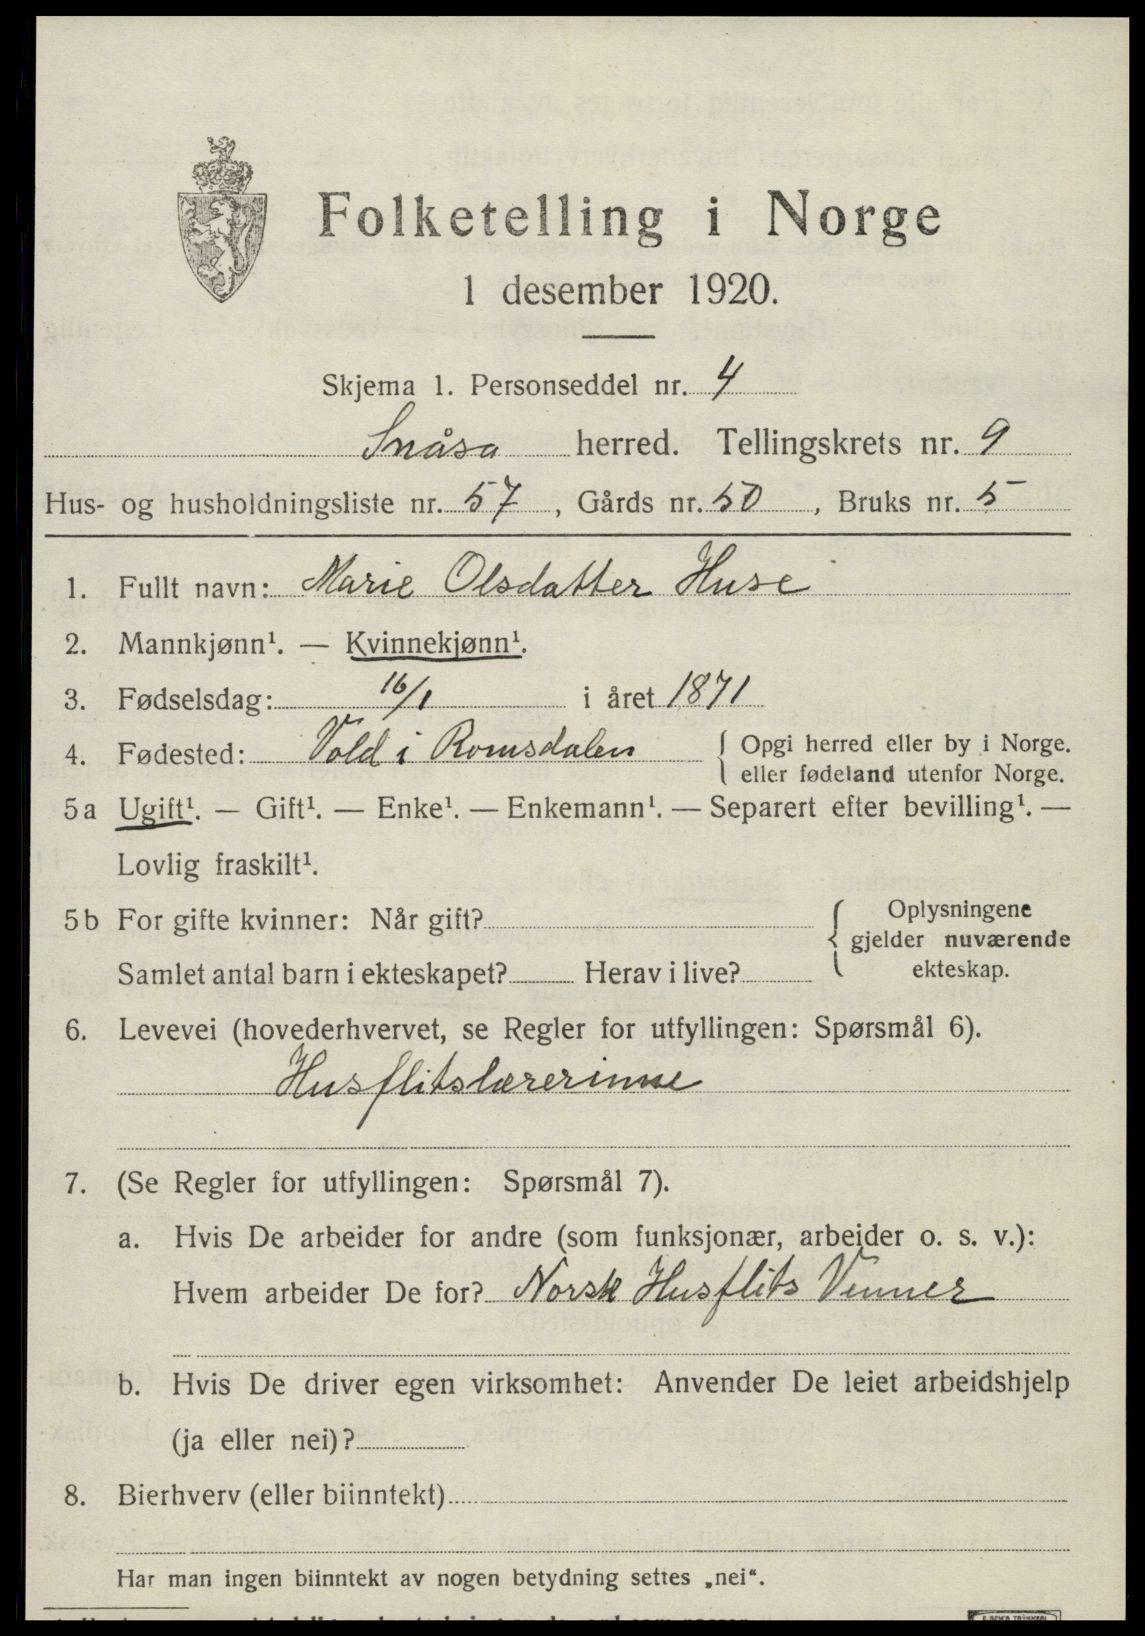 Folketelling i Norge
1 desember 1920.
Skjema 1. Personseddel nr. 4
Snåsa herred. Tellingskrets nr. 9
Hus- og husholdningsliste nr. 57, Gårds nr. 50, Bruks nr. 5
1. Fullt navn: Marie Olsdatter Huse
2. Mannkjønn¹. — Kvinnekjønn¹.
3. Fødselsdag: 16/1 i året 1871
4. Fødested: Vold i Romsdalen { Opgi herred eller by i Norge.
eller fødeland utenfor Norge.
5a Ugift¹. — Gift¹. — Enke¹. — Enkemann¹. — Separert efter bevilling¹. —
Lovlig fraskilt¹.
5b For gifte kvinner: Når gift? { Oplysningene
gjelder nuværende
Samlet antal barn i ekteskapet? Herav i live? ekteskap.
6. Levevei (hovederhvervet, se Regler for utfyllingen: Spørsmål 6).
Husflitslærerinne
7. (Se Regler for utfyllingen: Spørsmål 7).
a. Hvis De arbeider for andre (som funksjonær, arbeider o. s. v.):
Hvem arbeider De for? Norsk Husflits Venner
b. Hvis De driver egen virksomhet: Anvender De leiet arbeidshjelp
(ja eller nei)?
8. Bierhverv (eller biinntekt)
Har man ingen biinntekt av nogen betydning settes „nei“.